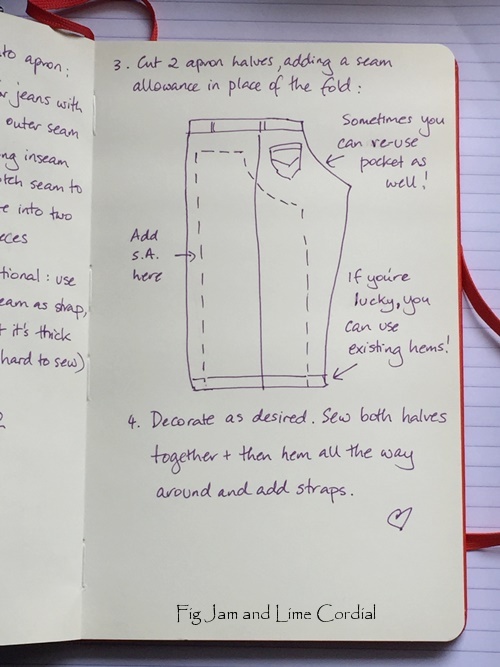 to apron:
jeans with
outer seam
inseam
seam to
into two
tional: use
as strap,
it's thick
hard to sew)
2
3. Cut 2 apron halves, adding a seam
allowance in place of the fold:
Sometimes you
can re-use
pocket as
well!
Add
S.A.
here
If you're
lucky, you
can use
existing hems!
4. Decorate as desired. Sew both halves
together + then hem all the way
around and add straps.
Fig Jam and Lime Cordial